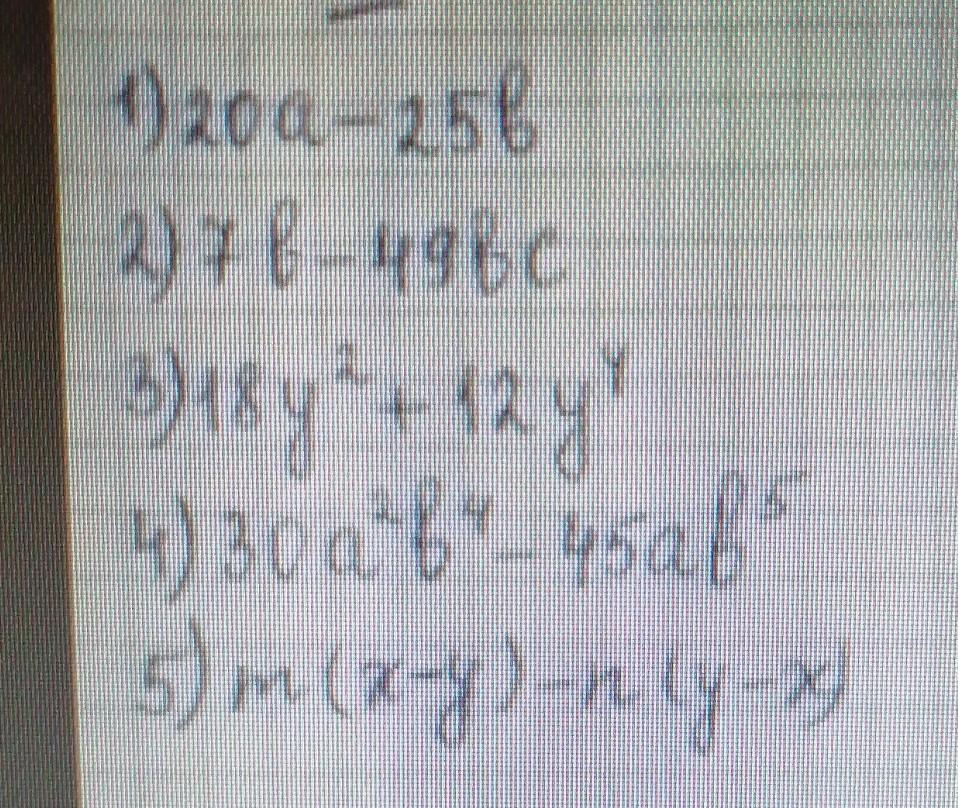 1) 20a - 25b
2) 7b - 49bc
3) 18y² + 12y⁴
4) 30a²b⁴ - 45ab⁵
5) m(x-y) - n(y-x)